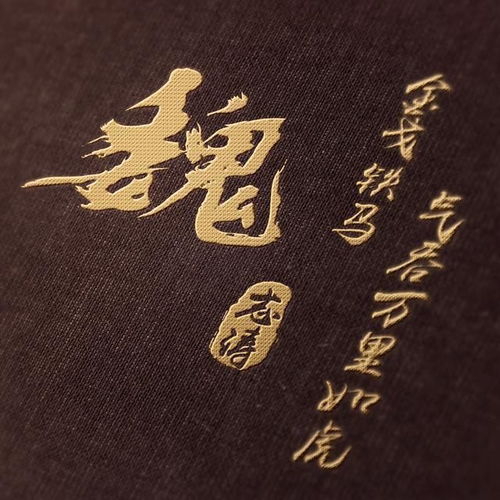 魏
志涛
金戈铁马
气吞万里如虎